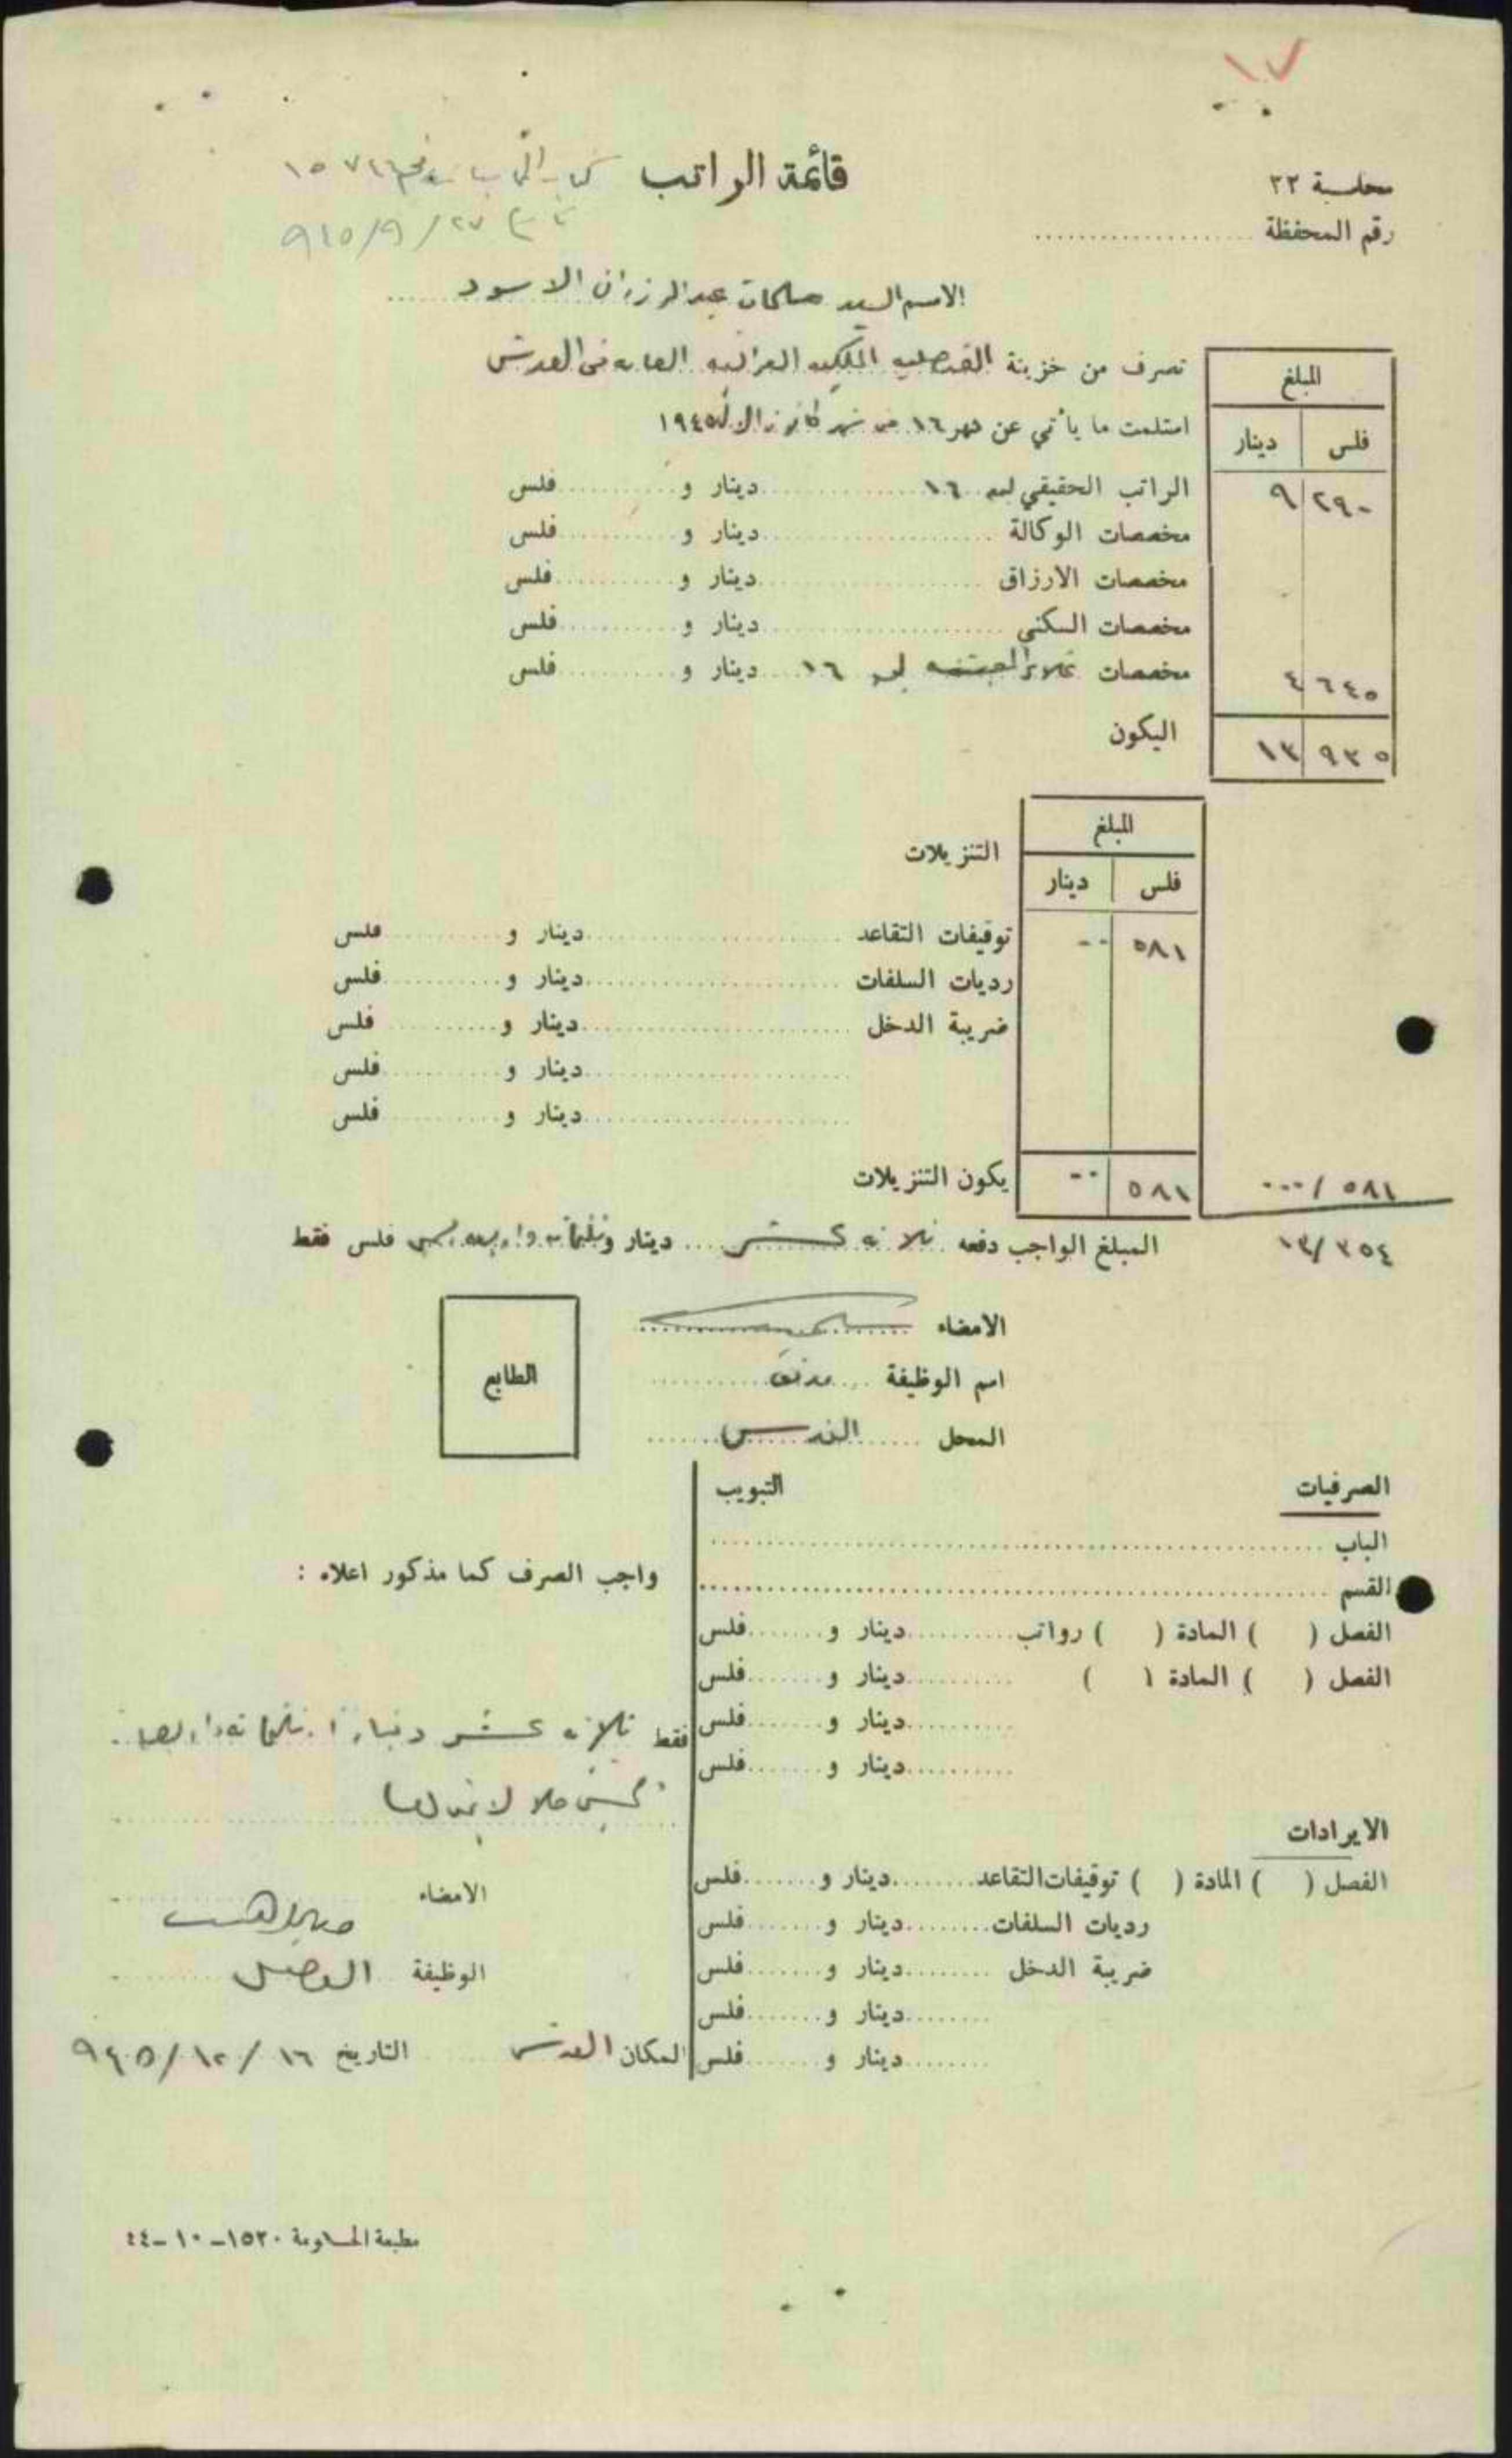 ١٧
محاسبة ٢٢
قائمة الراتب
١٥٧٤٦
رقم المحفظة
٩٤٥/٩/٢٧
الاسم السيد سلمان عبدالرزاق الاسود
تصرف من خزينة القنصلية الملكية العراقية العامة في القدس
استلمت ما يأتي عن شهر ١٦ من شهر كانون الاول ١٩٤٥
المبلغ
فلس دينار
الراتب الحقيقي ليوم ١٦ دينار و فلس ٢٩٠ ٩
مخصصات الوكالة دينار و فلس
مخصصات الارزاق دينار و فلس
مخصصات السكنى دينار و فلس
مخصصات غلاء المعيشة ليوم ١٦ دينار و فلس ٦٤٥ ٤
اليكون ٩٣٥ ١٣
المبلغ
التنزيلات
فلس دينار
توقيفات التقاعد دينار و فلس ٥٨١ ٠٠
رديات السلفات دينار و فلس
ضريبة الدخل دينار و فلس
دينار و فلس
دينار و فلس
يكون التنزيلات ٥٨١ ٠٠
٥٨١/٠٠٠
المبلغ الواجب دفعه ثلاثة عشر دينار وثلثمائة واربعة وخمسين فلس فقط
١٣/٣٥٤
الامضاء
الطابع
اسم الوظيفة
المحل القدس
الصرفيات
التبويب
الباب
القسم
الفصل ( ) المادة ( ) رواتب دينار و فلس
الفصل ( ) المادة ( ) دينار و فلس
دينار و فلس
دينار و فلس
الايرادات
الفصل ( ) المادة ( ) توقيفات التقاعد دينار و فلس
رديات السلفات دينار و فلس
ضريبة الدخل دينار و فلس
دينار و فلس
دينار و فلس
واجب الصرف كما مذكور اعلاه :
فقط ثلاثة عشر دينارا وثلثمائة واربعة
وخمسين فلسا لا غيرها
الامضاء
الوظيفة القنصل
المكان القدس التاريخ ١٦/١٢/٩٤٥
مطبعة الحكومة ١٥٢٠-١٠-٤٤